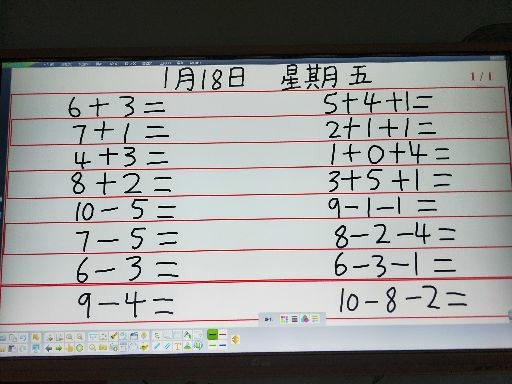 1月18日 星期五 1/1
6+3= 5+4+1=
7+1= 2+1+1=
4+3= 1+0+4=
8+2= 3+5+1=
10-5= 9-1-1=
7-5= 8-2-4=
6-3= 6-3-1=
9-4= 10-8-2=